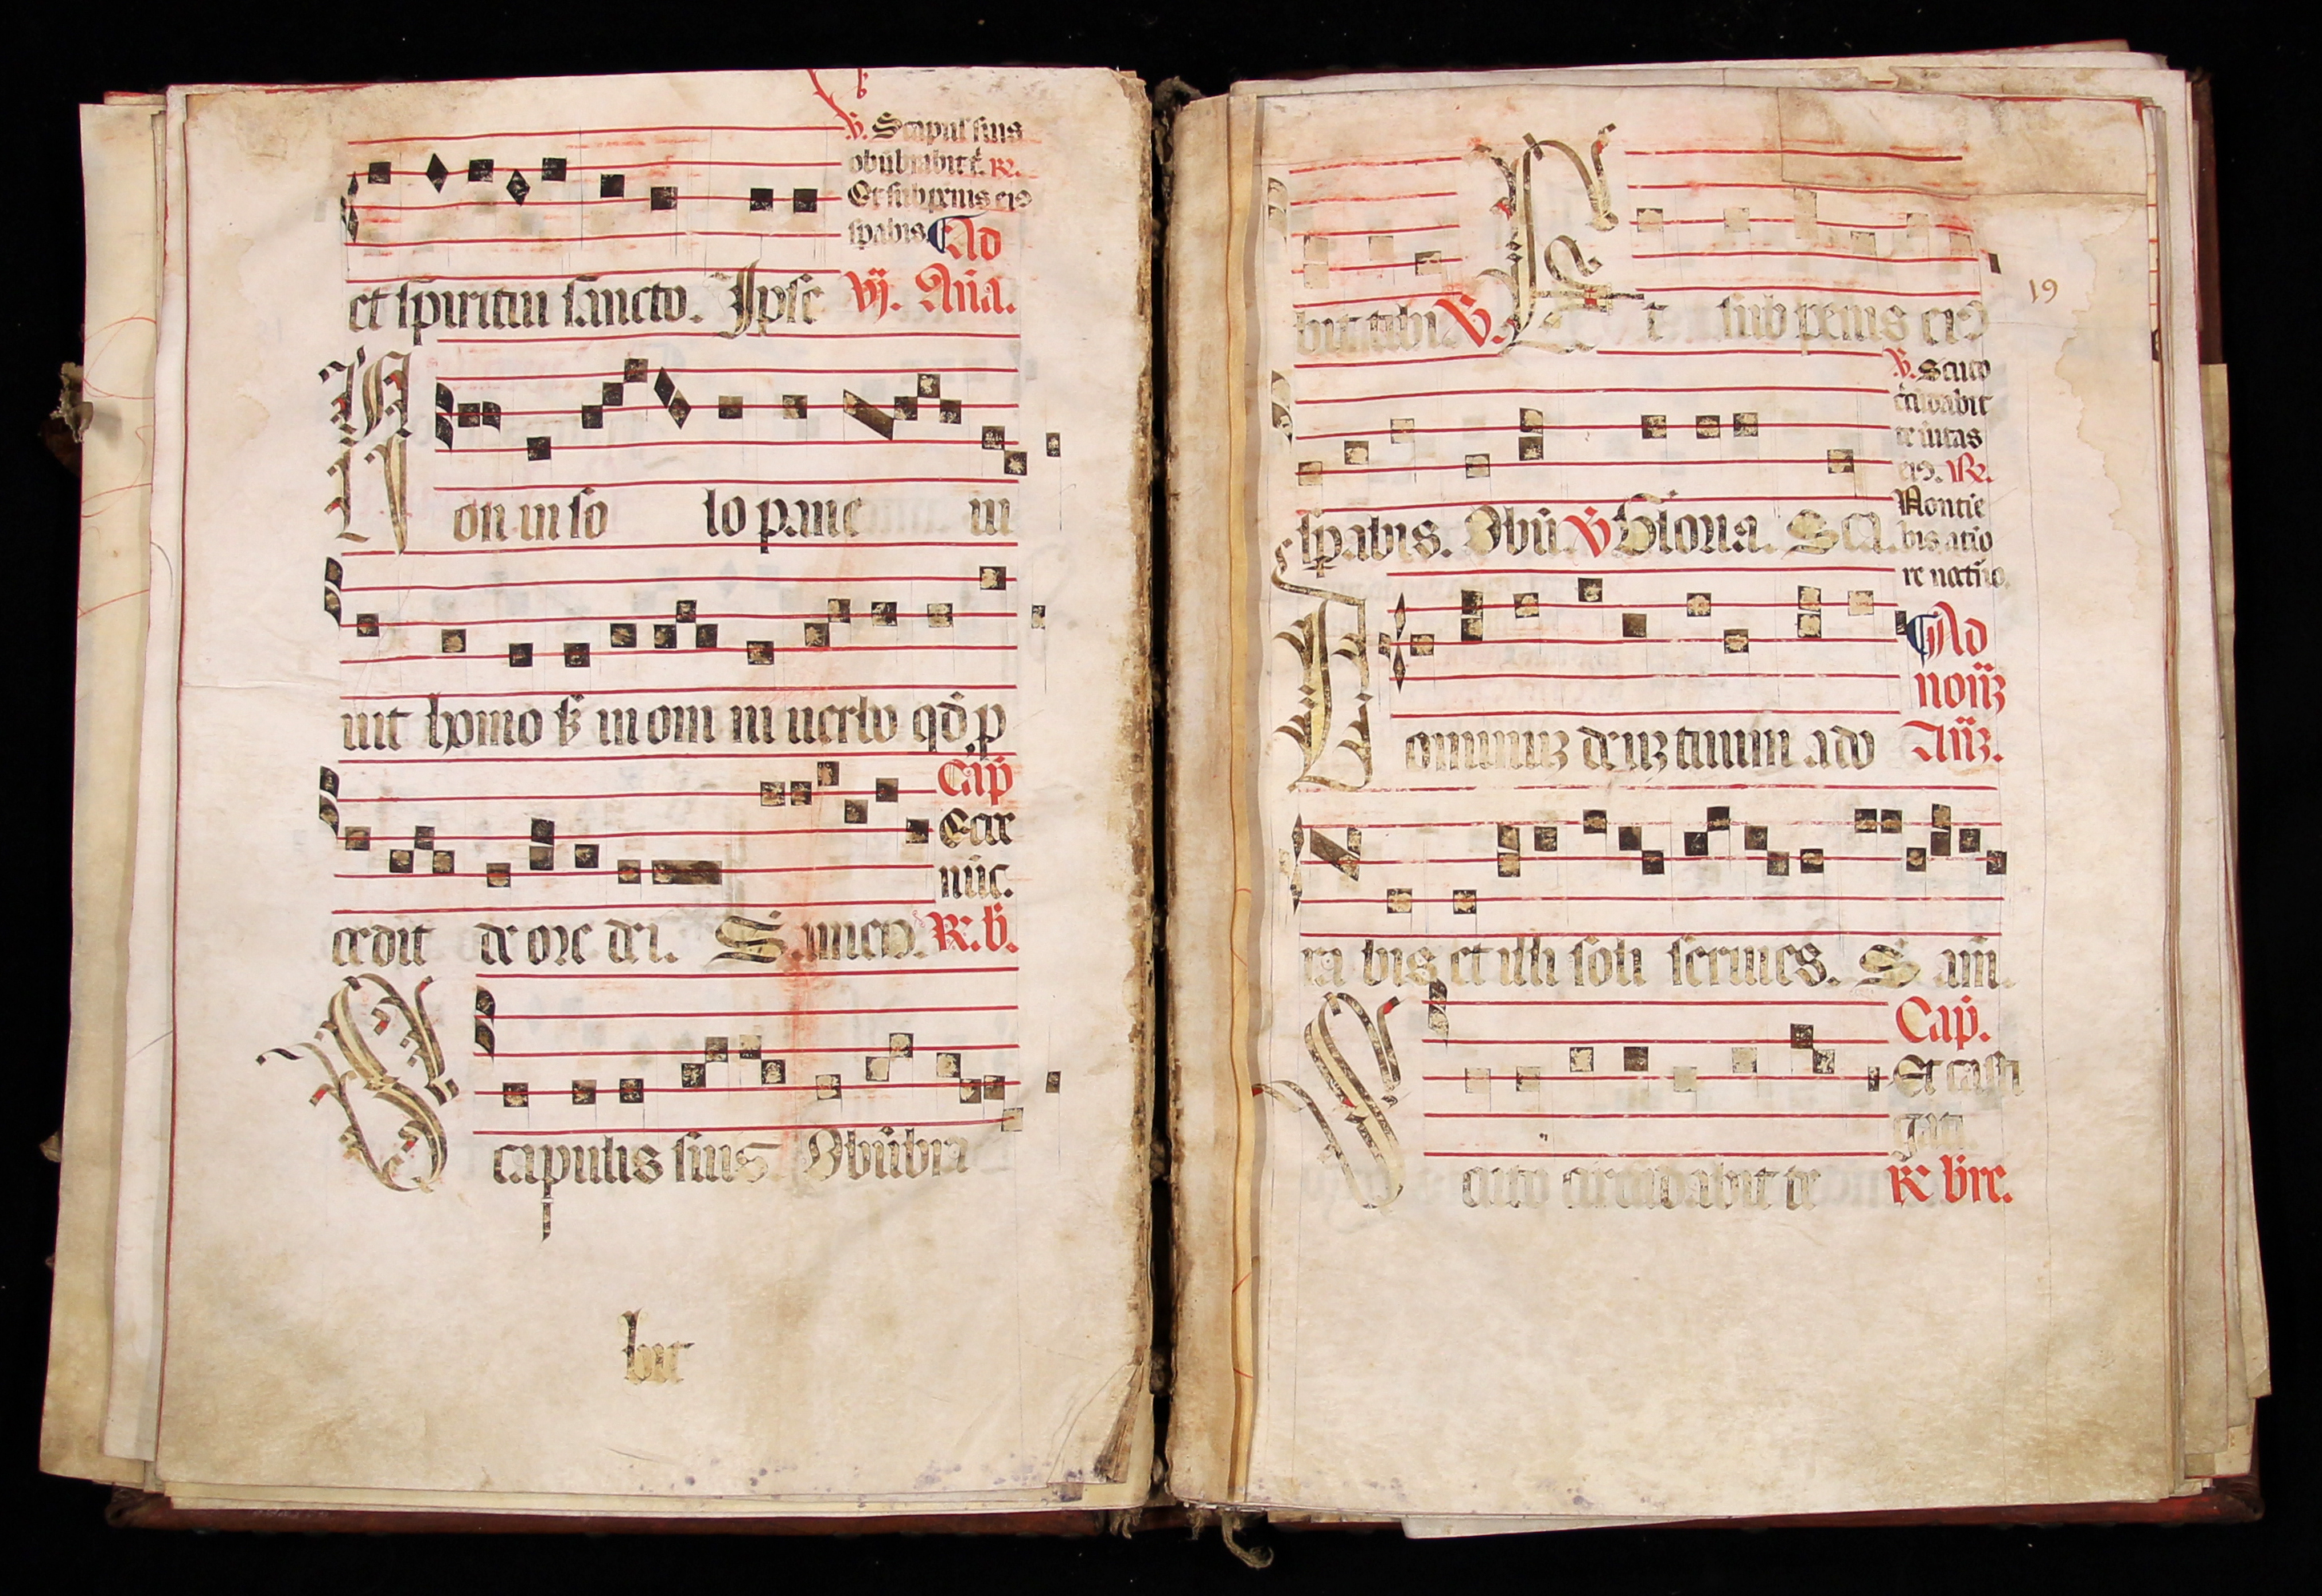 ℣. Scapul' suis
obūbrabit t̄. ℟.
Et sub pēnis ei9
spabis. Ad
et spiritui sancto. Ipse vj. Aña.
Non in so lo pane ui
uit homo sꝫ in omi in uerbo qd̄ p
Cap̄
Ecce
nūc.
cedit de ore dei. S. unctū. ℟. b̄.
Scapulis suis Obūbra
bit
19
bit tibi ℣. Et sub penis ei9
℣. Scuto
c̄cūdabit
te uītas
ei9. ℟.
Non tīe
bis a tīo
re noct̄no.
spabis. Obū. ℣ Gloria. Sca.
Ad
nonā
Añā.
Dominuꝫ deuꝫ tuum ado
ra bis et illi soli seruies. S. am.
Cap̄.
Et casti
gati
Scuto circūdabit te ℟ b̄re.